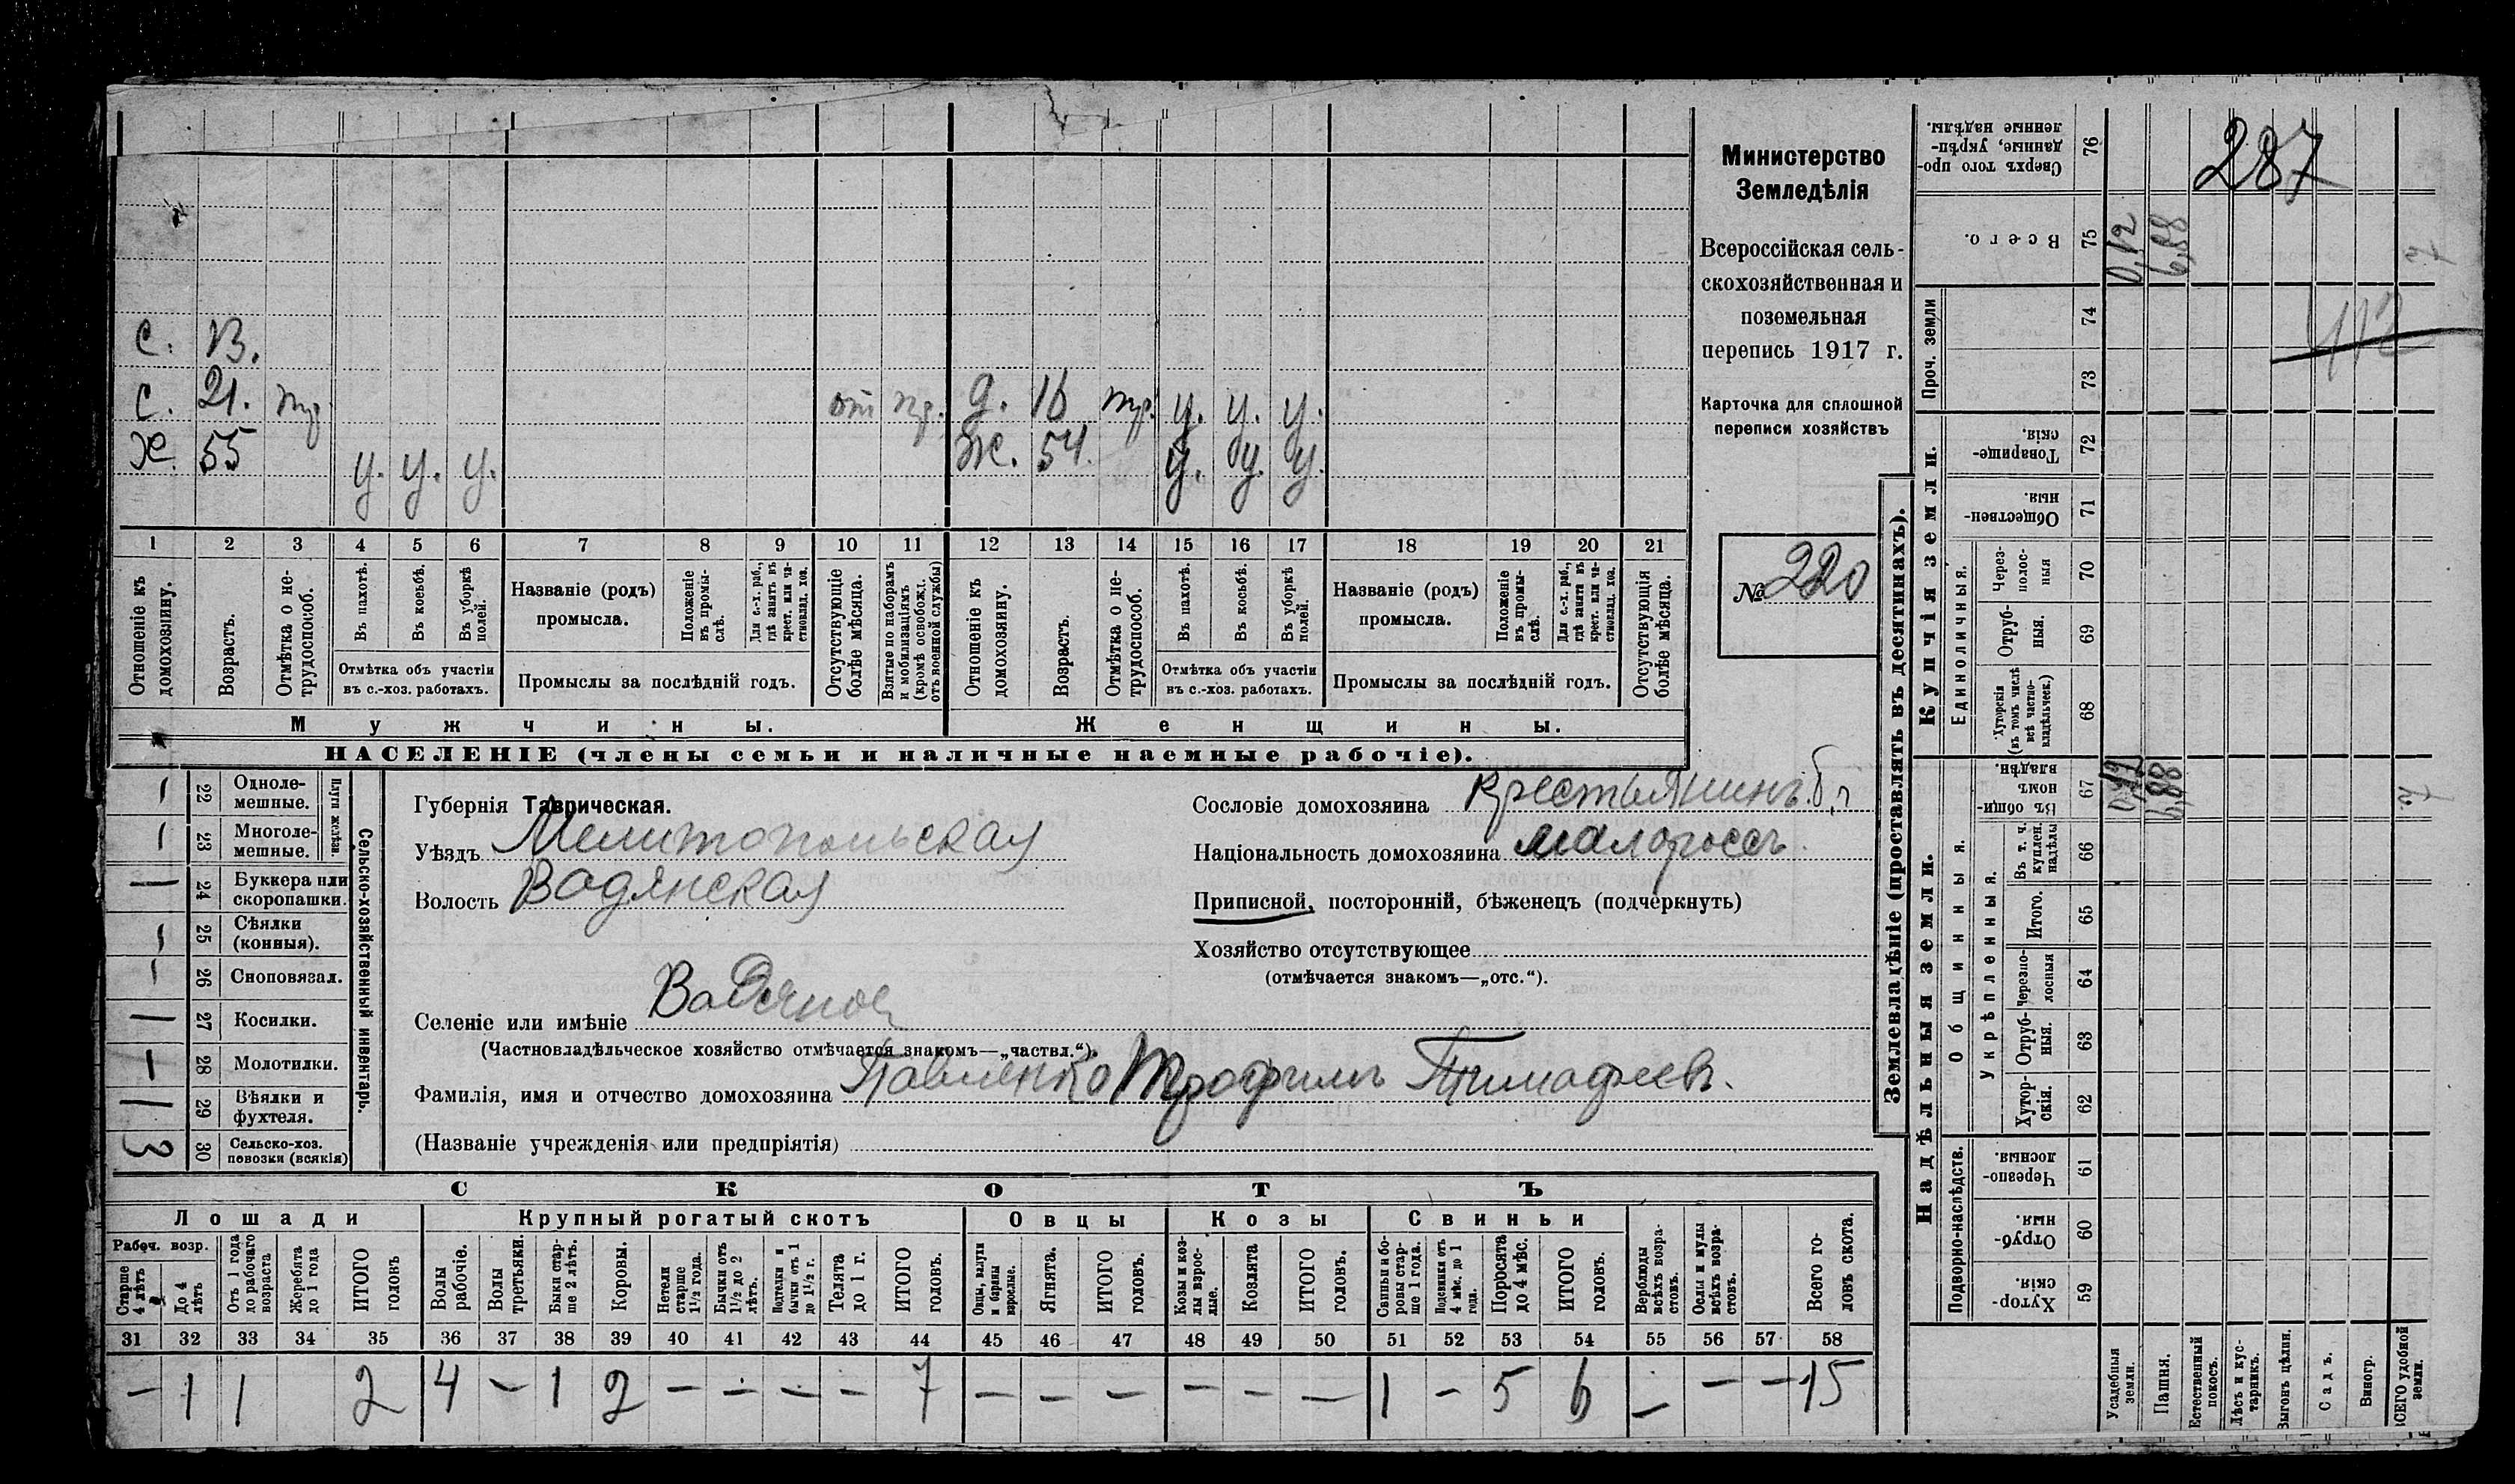 Министерство
Земледѣлія
Всероссійская сель-
скохозяйственная и
поземельная
перепись 1917 г.
Карточка для сплошной
переписи хозяйствъ
№ 220
с. 13.
с. 21. тр. от пр. д. 16 тр. у. у. у.
х. 55 у. у. у. ж. 54. у. у. у.
1 2 3 4 5 6 7 8 9 10 11 12 13 14 15 16 17 18 19 20 21
Отношеніе къ домохозяину.
Возрастъ.
Отмѣтка о не-трудоспособ.
Въ пахотѣ.
Въ косьбѣ.
Въ уборкѣ полей.
Отмѣтка объ участіи
въ с.-хоз. работахъ.
Названіе (родъ)
промысла.
Положеніе въ промы-слѣ.
Для с.-х. раб., гдѣ занятъ въ крест. или ча-стновлад. хоз.
Промыслы за послѣдній годъ.
Отсутствующіе болѣе мѣсяца.
Взятые по наборамъ и мобилизаціямъ (кромѣ освобожд. отъ военной службы)
Отношеніе къ домохозяину.
Возрастъ.
Отмѣтка о не-трудоспособ.
Въ пахотѣ.
Въ косьбѣ.
Въ уборкѣ полей.
Отмѣтка объ участіи
въ с.-хоз. работахъ.
Названіе (родъ)
промысла.
Положеніе въ промы-слѣ.
Для с.-х. раб., гдѣ занята въ крест. или ча-стновлад. хоз.
Промыслы за послѣдній годъ.
Отсутствующія болѣе мѣсяца.
Мужчины.
Женщины.
НАСЕЛЕНІЕ (члены семьи и наличные наемные рабочіе).
Сельско-хозяйственный инвентарь.
Плуги желѣзн.
22 Одноле-мешные.
23 Многоле-мешные.
24 Буккера или скоропашки.
25 Сѣялки (конныя).
26 Сноповязал.
27 Косилки.
28 Молотилки.
29 Вѣялки и фухтеля.
3 30 Сельско-хоз. повозки (всякія)
Губернія Таврическая.
Уѣздъ Мелитопольская
Волость Водянская
Селеніе или имѣніе Водяное
(Частновладѣльческое хозяйство отмѣчается знакомъ—„частвл.“).
Фамилія, имя и отчество домохозяина Павленко Трофимъ Тимофеев.
(Названіе учрежденія или предпріятія)
Сословіе домохозяина крестьянинъ
Національность домохозяина малороссъ.
Приписной, посторонній, бѣженецъ (подчеркнуть)
Хозяйство отсутствующее
(отмѣчается знакомъ—„отс.“).
СКОТЪ
Лошади Крупный рогатый скотъ Овцы Козы Свиньи
Рабоч. возр.
Старше 4 лѣтъ
До 4 лѣтъ
Отъ 1 года до рабочаго возраста
Жеребята до 1 года
ИТОГО головъ
Волы рабочіе.
Волы третьяки.
Быки стар-ше 2 лѣтъ.
Коровы.
Нетели старше 1½ года.
Бычки отъ 1½ до 2 лѣтъ.
Подтелки и бычки отъ 1 до 1½ г.
Телята до 1 г.
ИТОГО головъ.
Овцы, валухи и бараны взрослые.
Ягнята.
ИТОГО головъ.
Козы и коз-лы взрос-лые.
Козлята
ИТОГО головъ.
Свиньи и бо-ровы стар-ше 1 года.
Подсвинки отъ 4 мѣс. до 1 года.
Поросята до 4 мѣс.
ИТОГО головъ.
Верблюды всѣхъ возра-стовъ.
Ослы и мулы всѣхъ возра-стовъ.
Всего го-ловъ скота.
31 32 33 34 35 36 37 38 39 40 41 42 43 44 45 46 47 48 49 50 51 52 53 54 55 56 57 58
— 1 1 2 4 — 1 2 — — — — 7 — — — — — — 1 — 5 6 — — — 15
Землевладѣніе (проставлять въ десятинахъ).
Надѣльныя земли.
Купчія земли.
Проч. земли
Подворно-наслѣдств.
Общинныя.
Укрѣпленныя.
Единоличныя.
Хутор-скія. 59
Отруб-ныя. 60
Черезпо-лосныя. 61
Хутор-скія. 62
Отруб-ныя. 63
Черезпо-лосныя 64
Итого. 65
Въ т. ч. куплен. надѣлы 66
Въ общи-номъ владѣн. 67
Хуторскія (въ томъ числѣ всѣ частно-владѣльческ.) 68
Отруб-ныя. 69
Через-полос-ныя 70
Обществен-ныя. 71
Товарище-скія. 72
73
74
Всего. 75
Сверхъ того про-данные, укрѣп-ленные надѣлы. 76
Усадебныя земли.
Пашня.
Естественный покосъ.
Лѣсъ и кус-тарникъ.
Выгонъ цѣлин.
Садъ.
Виногр.
ВСЕГО удобной земли.
0,12
6,88
0,12
6,88
7
7
287
412